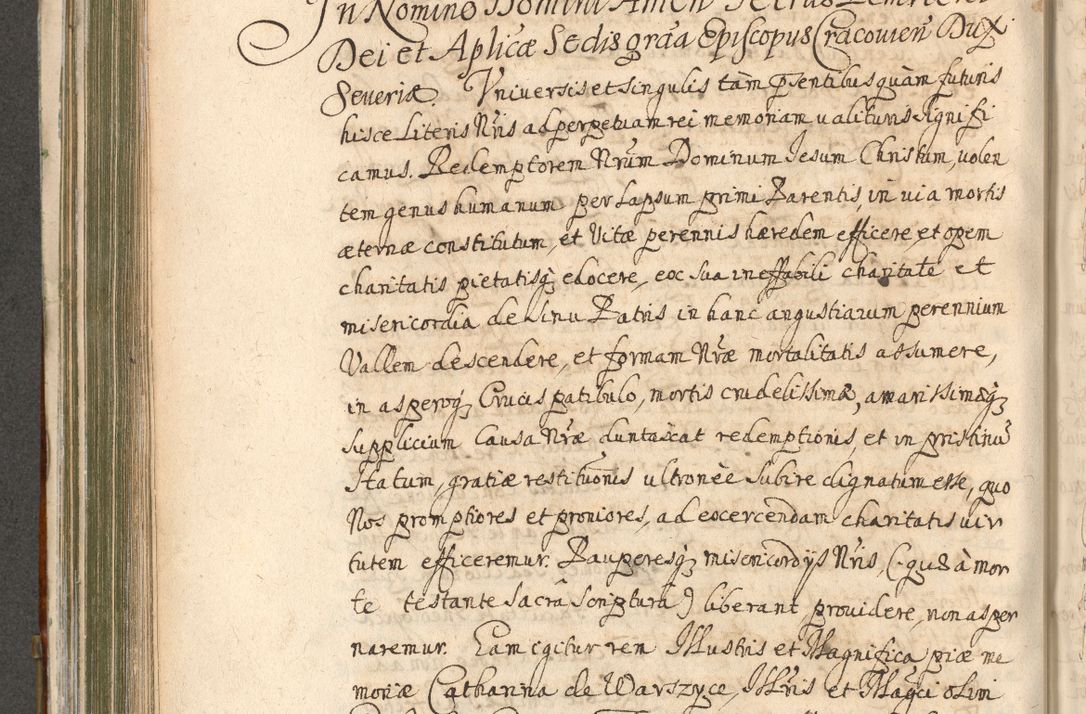 In Nomine Domini Amen Petrus
Dei et Aplicæ Sedis grãa Episcopus Cracovien̄ Dux
Severiæ. Vniversis et singulis tàm p̄sentibus quàm futuris
hisce Literis Nr̄is ad perpetuam rei memoriam valituris signifi
camus. Redemptorem Nr̄um Dominum Jesum Christum, volen
tem genus humanum per Lapsum primi Parentis, in via mortis
æternæ constitutum, et Vitæ perennis hæredem efficere, et opem
charitatis pietatisq̨ edocere, ex sua ineffabili charitate et
misericordia de sinu Patris in hanc angustiarum perennium
Vallem descendere, et formam Nr̄æ mortalitatis assumere,
in asperoq̨ Crucis patibulo, mortis crudelissimæ, amarissimæq̨
supplicium Causa Nr̄æ duntaxat redemptionis, et in pristinū
statum, gratiæ restitūonis ultroneè subire dignatum esse, quo
Nos promptiores et proniores, ad exercendam charitatis vir
tutem efficeremur. Pauperesq̨ misericordijs Nr̄is, (quæ à mor
te testante sacrâ scripturâ) liberant providere, non asper
naremur. Eam igitur rem Illustris et Magnifica piæ me
moriæ Catharina de Warszyce, Illr̄is et Magci olim